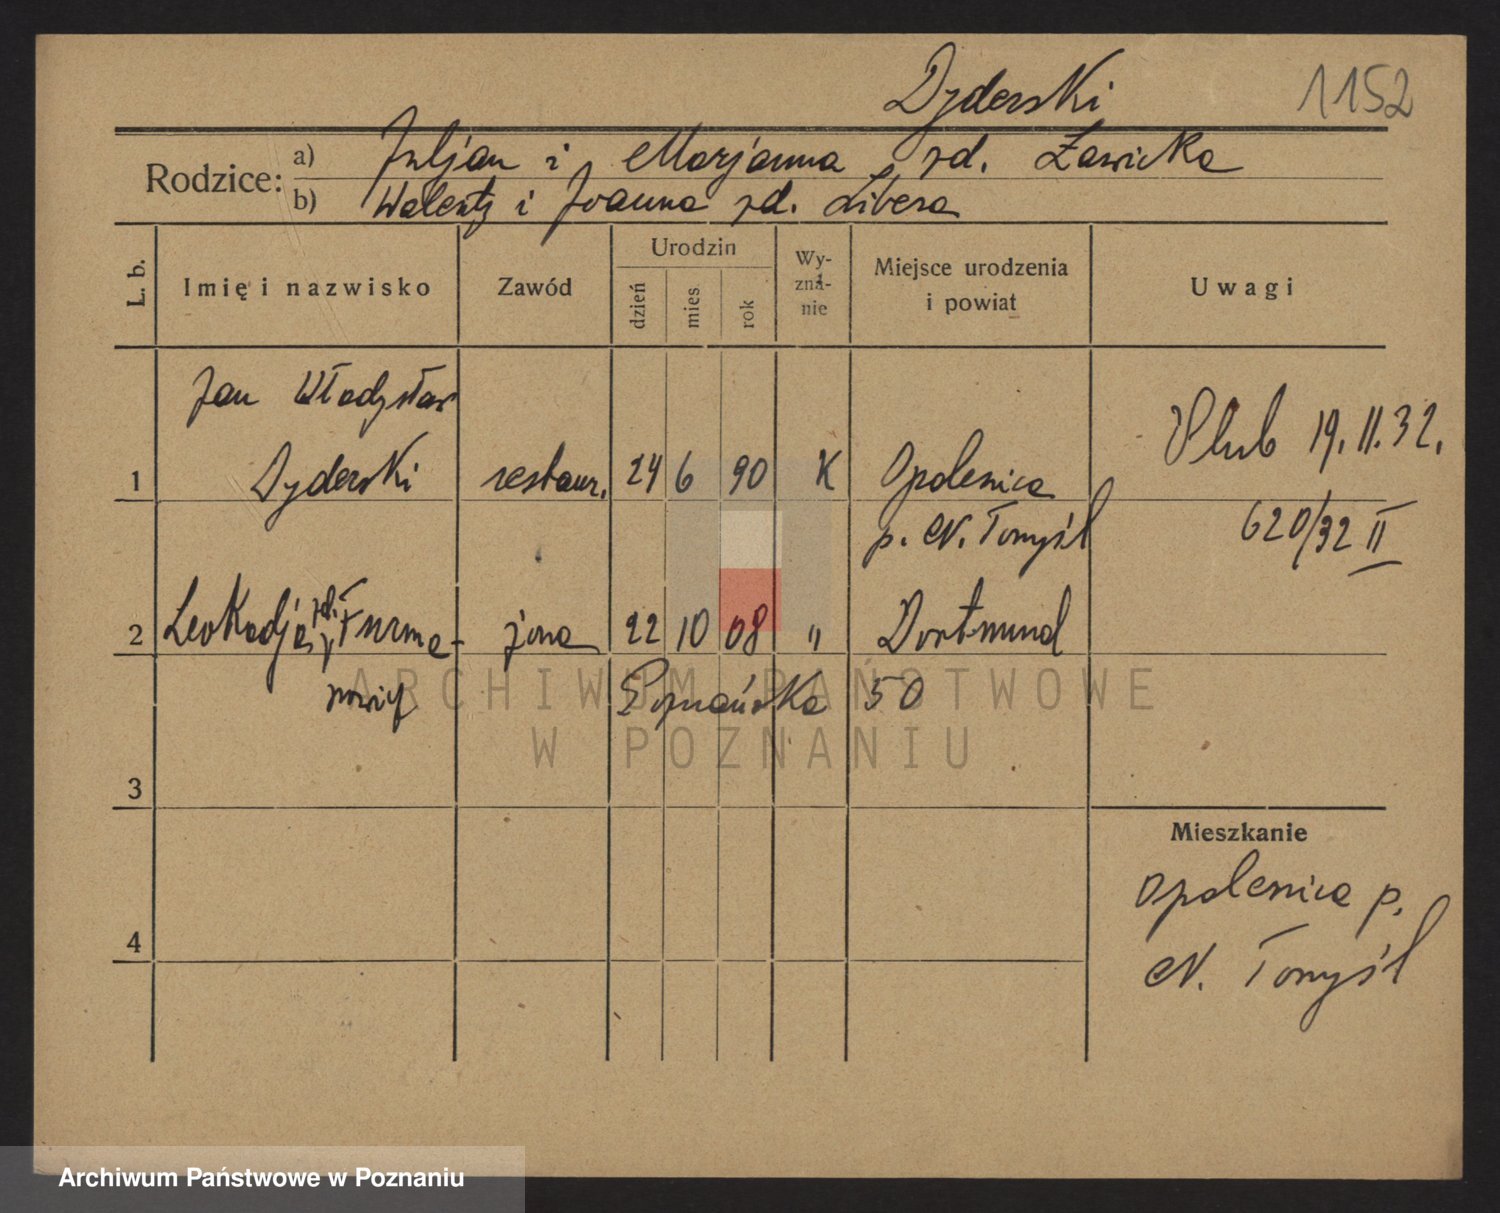 Dyderski 1152
Rodzice: a) Juljan i Marjanna rd. Ławicka
b) Walenty i Joanna rd. Libera
L. b. Imię i nazwisko Zawód Urodzin dzień mies. rok Wyznanie Miejsce urodzenia i powiat Uwagi
Jan Władysław
1 Dyderski restaur. 24 6 90 K Opalenica Ślub 19. II. 32.
p. N. Tomyśl 620/32 II
2 Leokadja rd. Furma- żona 22 10 08 " Dortmund
nowicz Poznańska 50
3
Mieszkanie
Opalenica p.
4 N. Tomyśl
ARCHIWUM PAŃSTWOWE
W POZNANIU
Archiwum Państwowe w Poznaniu